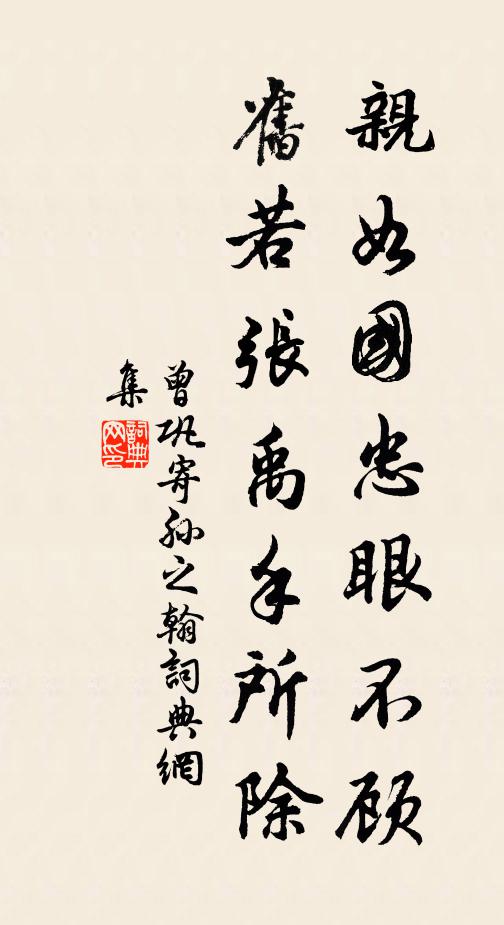 親如國忠眼不顧
舊若張禹手所除
曾巩寄孙之翰詞典網
集
詞典
网印